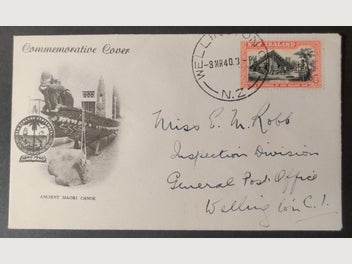 Commemorative Cover
WELLINGTON
-8 MR 40. 3 - PM
N.Z.
ZEALAND
Miss E. M. Robb
Inspection Division
General Post Office
Wellington C.1.
ANCIENT MAORI CANOE